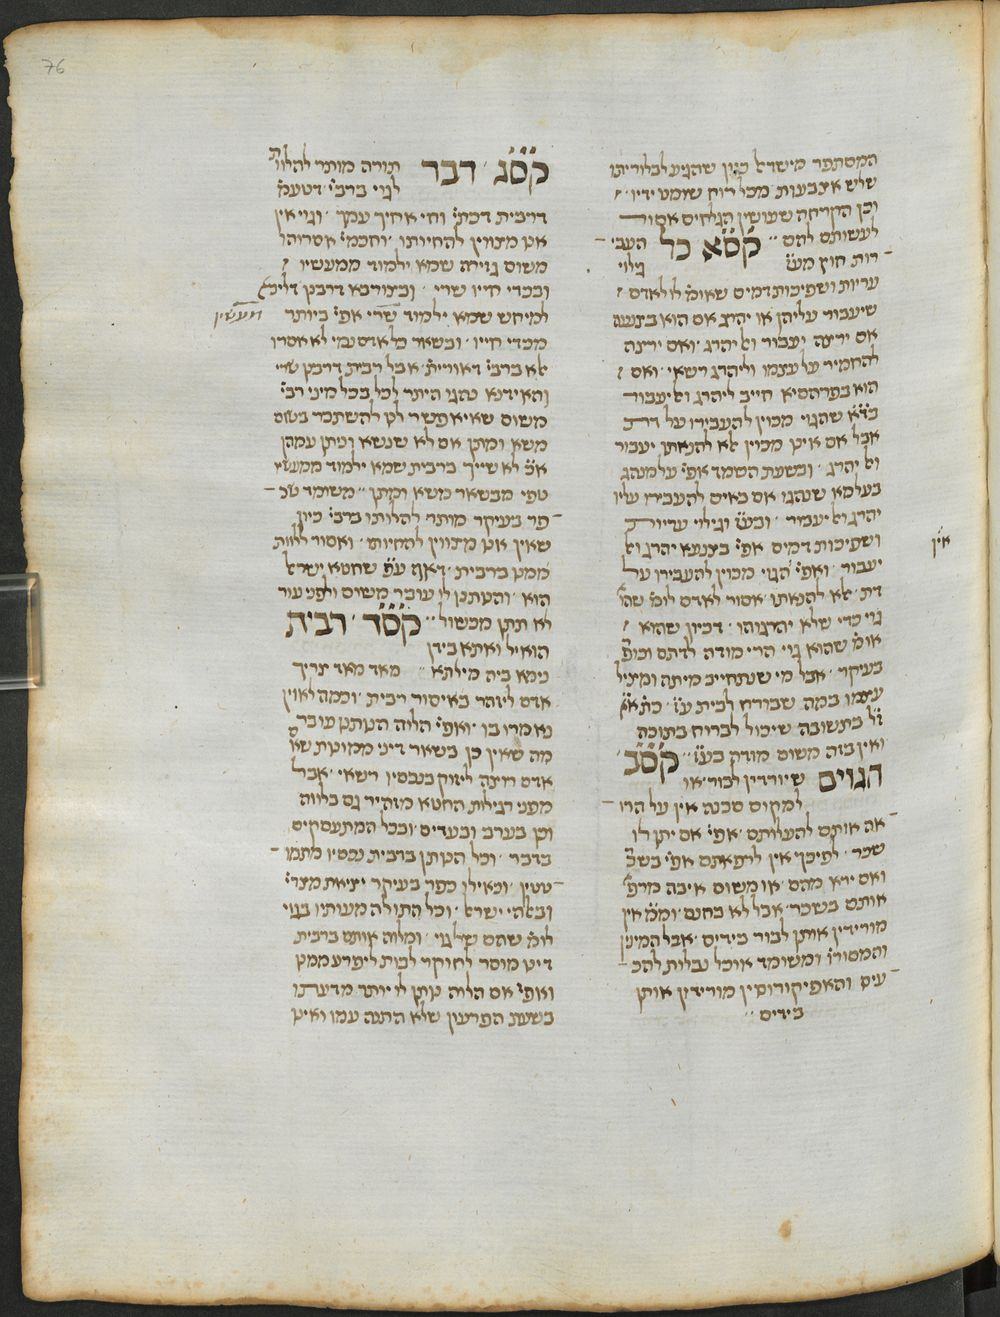 76
המסתפר מישראל כגון שהגיע לבלוריתו
שלש אצבעות מכל רוח שומט ידיו
וכן הקרחה שעושין הגלחים אסור
לעשותם להם קסא כל העבי
רות חוץ מע״ז גילוי
עריות ושפיכות דמים שאומ׳ לו לאדם
שיעבור עליהן או יהרג אם הוא בצנעה
אם ירצה יעבור ואל יהרג ואם ירצה
להחמיר על עצמו וליהרג רשאי ואם
הוא בפרהסיא חייב ליהרג ואל יעבור
בד״א שהגוי מכוין להעבירו על דת
אבל אם אינו מכוין אלא להנאתו יעבור
ואל יהרג ובשעת השמד אפי׳ על מנהג
בעלמא שנהגו אם באים להעבירו עליו
יהרג ואל יעבור ובע״ז וגילוי עריות
ושפיכות דמים אפי׳ בצנעא יהרג ואל
אין
יעבור ואפי׳ הגוי מכוין להעבירו על
דת אלא להנאתו אסור לאדם לומ׳ שהוא
גוי כדי שלא יהרגוהו דכיון שהוא
אומ׳ שהוא גוי הרי מודה לדתם וכופ׳
בעיקר אבל מי שנתחייב מיתה ומציל
עצמו במה שבורח לבית ע״ז כת׳ א״א
ז״ל בתשובה שיכול לברוח בתוכה
ואין בזה משום מודה בע״ז קסב
הגוים שיורדין לבור או
למקום סכנה אין על הרו
אה אותם להעלותם אפי׳ אם יתן לו
שכר לפיכך אין לרפאתם אפי׳ בשכ׳
ואם ירא מהם או משום איבה מרפ׳
אותם בשכר אבל לא בחנם ומ״מ אין
מורידין אותן לבור בידים אבל המינין
והמסורו׳ ומשומד אוכל נבלות להכ
עיס והאפיקורוסין מורידין אותן
בידים
קסג דבר תורה מותר להלוות
לגוי ברבי׳ דטעמ׳
דריבית דכתי׳ וחי אחיך עמך וגוי אין
אנו מצווין להחיותו וחכמי׳ אסרוהו
משום גזירה שמא ילמוד ממעשיו
ובכדי חייו שרי ובצורבא דרבנן דליכא
למיחש שמא ילמוד שרי אפי׳ ביותר
ממעשיו
מכדי חייו ובשאר כל אדם נמי לא אסרו
אלא ברבי׳ דאורית׳ אבל רבית דרבנן שרי
והאידנא נהגו היתר לכל בכל מיני רבי׳
משום שאי אפשר לנו להשתכר בשום
משא ומתן אם לא שנשא וניתן עמהן
א״כ לא שייך ברבית שמא ילמוד ממעשיו
טפי מבשאר משא ומתן משומד שכ
פר בעיקר מותר להלותו ברבי׳ כיון
שאין אנו מצווין להחיותו ואסור ללוות
ממנו ברבית דאף ע״פ שחטא ישראל
הוא והנותנו לו עובר משום ולפני עור
לא תתן מכשול קסד רבית
הואיל ואתא בידן
נימא ביה מילתא מאד מאד צריך
אדם ליזהר באיסור רבית וכמה לאוין
נאמרו בו ואפי׳ הלוה הנותנו עובר
מה שאין כן בשאר דיני ממונות שאם
אדם רוצה ליזוק בנכסיו רשאי אבל
מפני רגילות החטא מזהיר גם בלווה
וכן בערב ובעדים ובכל המתעסקים
בדבר וכל הנותן ברבית נכסיו מתמו
טטין וכאילו כפר בעיקר יציאת מצרי׳
ובאלהי ישראל וכל התולה מעותיו בגוי
לומ׳ שהם של גוי ומלוה אותם ברבית
דינו מוסר לחוקר לבות ליפרע ממנו
ואפי׳ אם הלוה נותן לו יותר מדעתו
בשעת הפרעון שלא התנה עמו ואינו